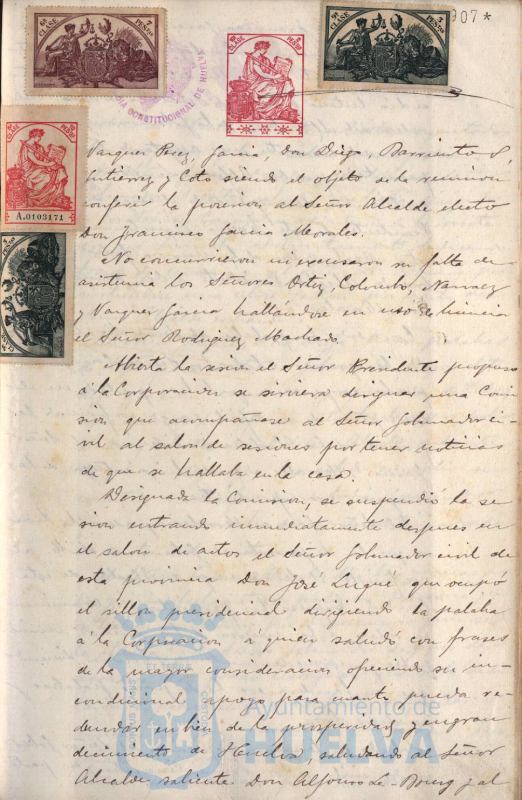 5ª CLASE 7 PESETAS
907*
3 PESETAS
ALCALDIA CONSTITUCIONAL DE HUELVA
A.0103171
Vazquez Perez, Garcia, Don Diego, Barriento S,
Gutierrez y Coto siendo el objeto de la reunion
conferir la posesion al Señor Alcalde electo
Don Francisco Garcia Morales.
No concurrieron ni excusaron su falta de
asistencia los Señores Ortiz, Colombo, Narvaez
y Vazquez Garcia hallándose en uso de licencia
el Señor Rodriguez Machado.
Abierta la sesion el Señor Presidente propuso
á la Corporacion se sirviera designar una Comi
sion que acompañase al Señor Gobernador ci-
vil al salon de sesiones por tener noticias
de que se hallaba en la casa.
Designada la Comision, se suspendió la se
sion entrando inmediatamente despues en
el salon de actos el Señor Gobernador civil de
esta provincia Don José Luqué que ocupó
el sillon presidencial dirigiendo la palabra
á la Corporacion á quien saludó con frases
de la mayor consideracion ofreciendo su in-
condicional apoyo para cuanto pueda re-
dundar en bien de la prosperidad y engran
decimiento de Huelva, saludando al Señor
Alcalde saliente Don Alfonso Le-Bourg y al
Ayuntamiento de
HUELVA